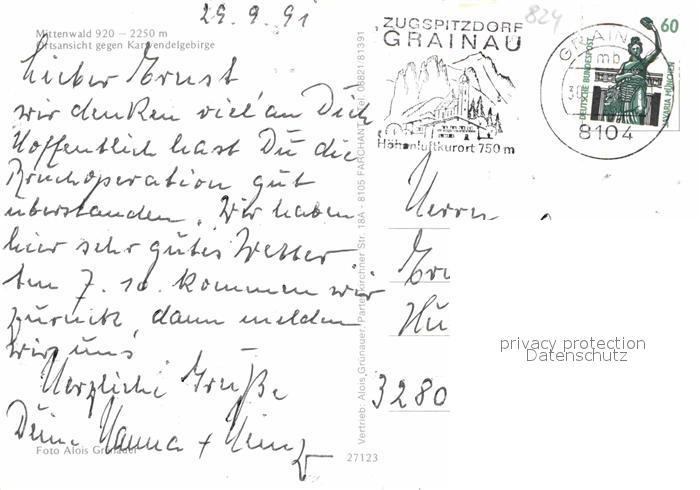 29.9.91
824
Mittenwald 920 – 2250 m
Ortsansicht gegen Karwendelgebirge
Lieber Ernst,
wir denken viel an Dich
Hoffentlich hast Du die
Bruchoperation gut
überstanden. Wir haben
hier sehr gutes Wetter
Am 7. 10. kommen wir
zurück, dann melden
wir uns
Herzliche Grüße
Deine Hanna + Heinz
Foto Alois Grünauer
Vertrieb: Alois Grünauer, Partenkirchner Str. 18A - 8105 FARCHANT, Tel. 08821/81391
27123
ZUGSPITZDORF
GRAINAU
Höhenluftkurort 750 m
GRAIN
mb
8104
60
DEUTSCHE BUNDESPOST
BAVARIA MÜNCHEN
Herrn
Er
Hu
3280
privacy protection
Datenschutz